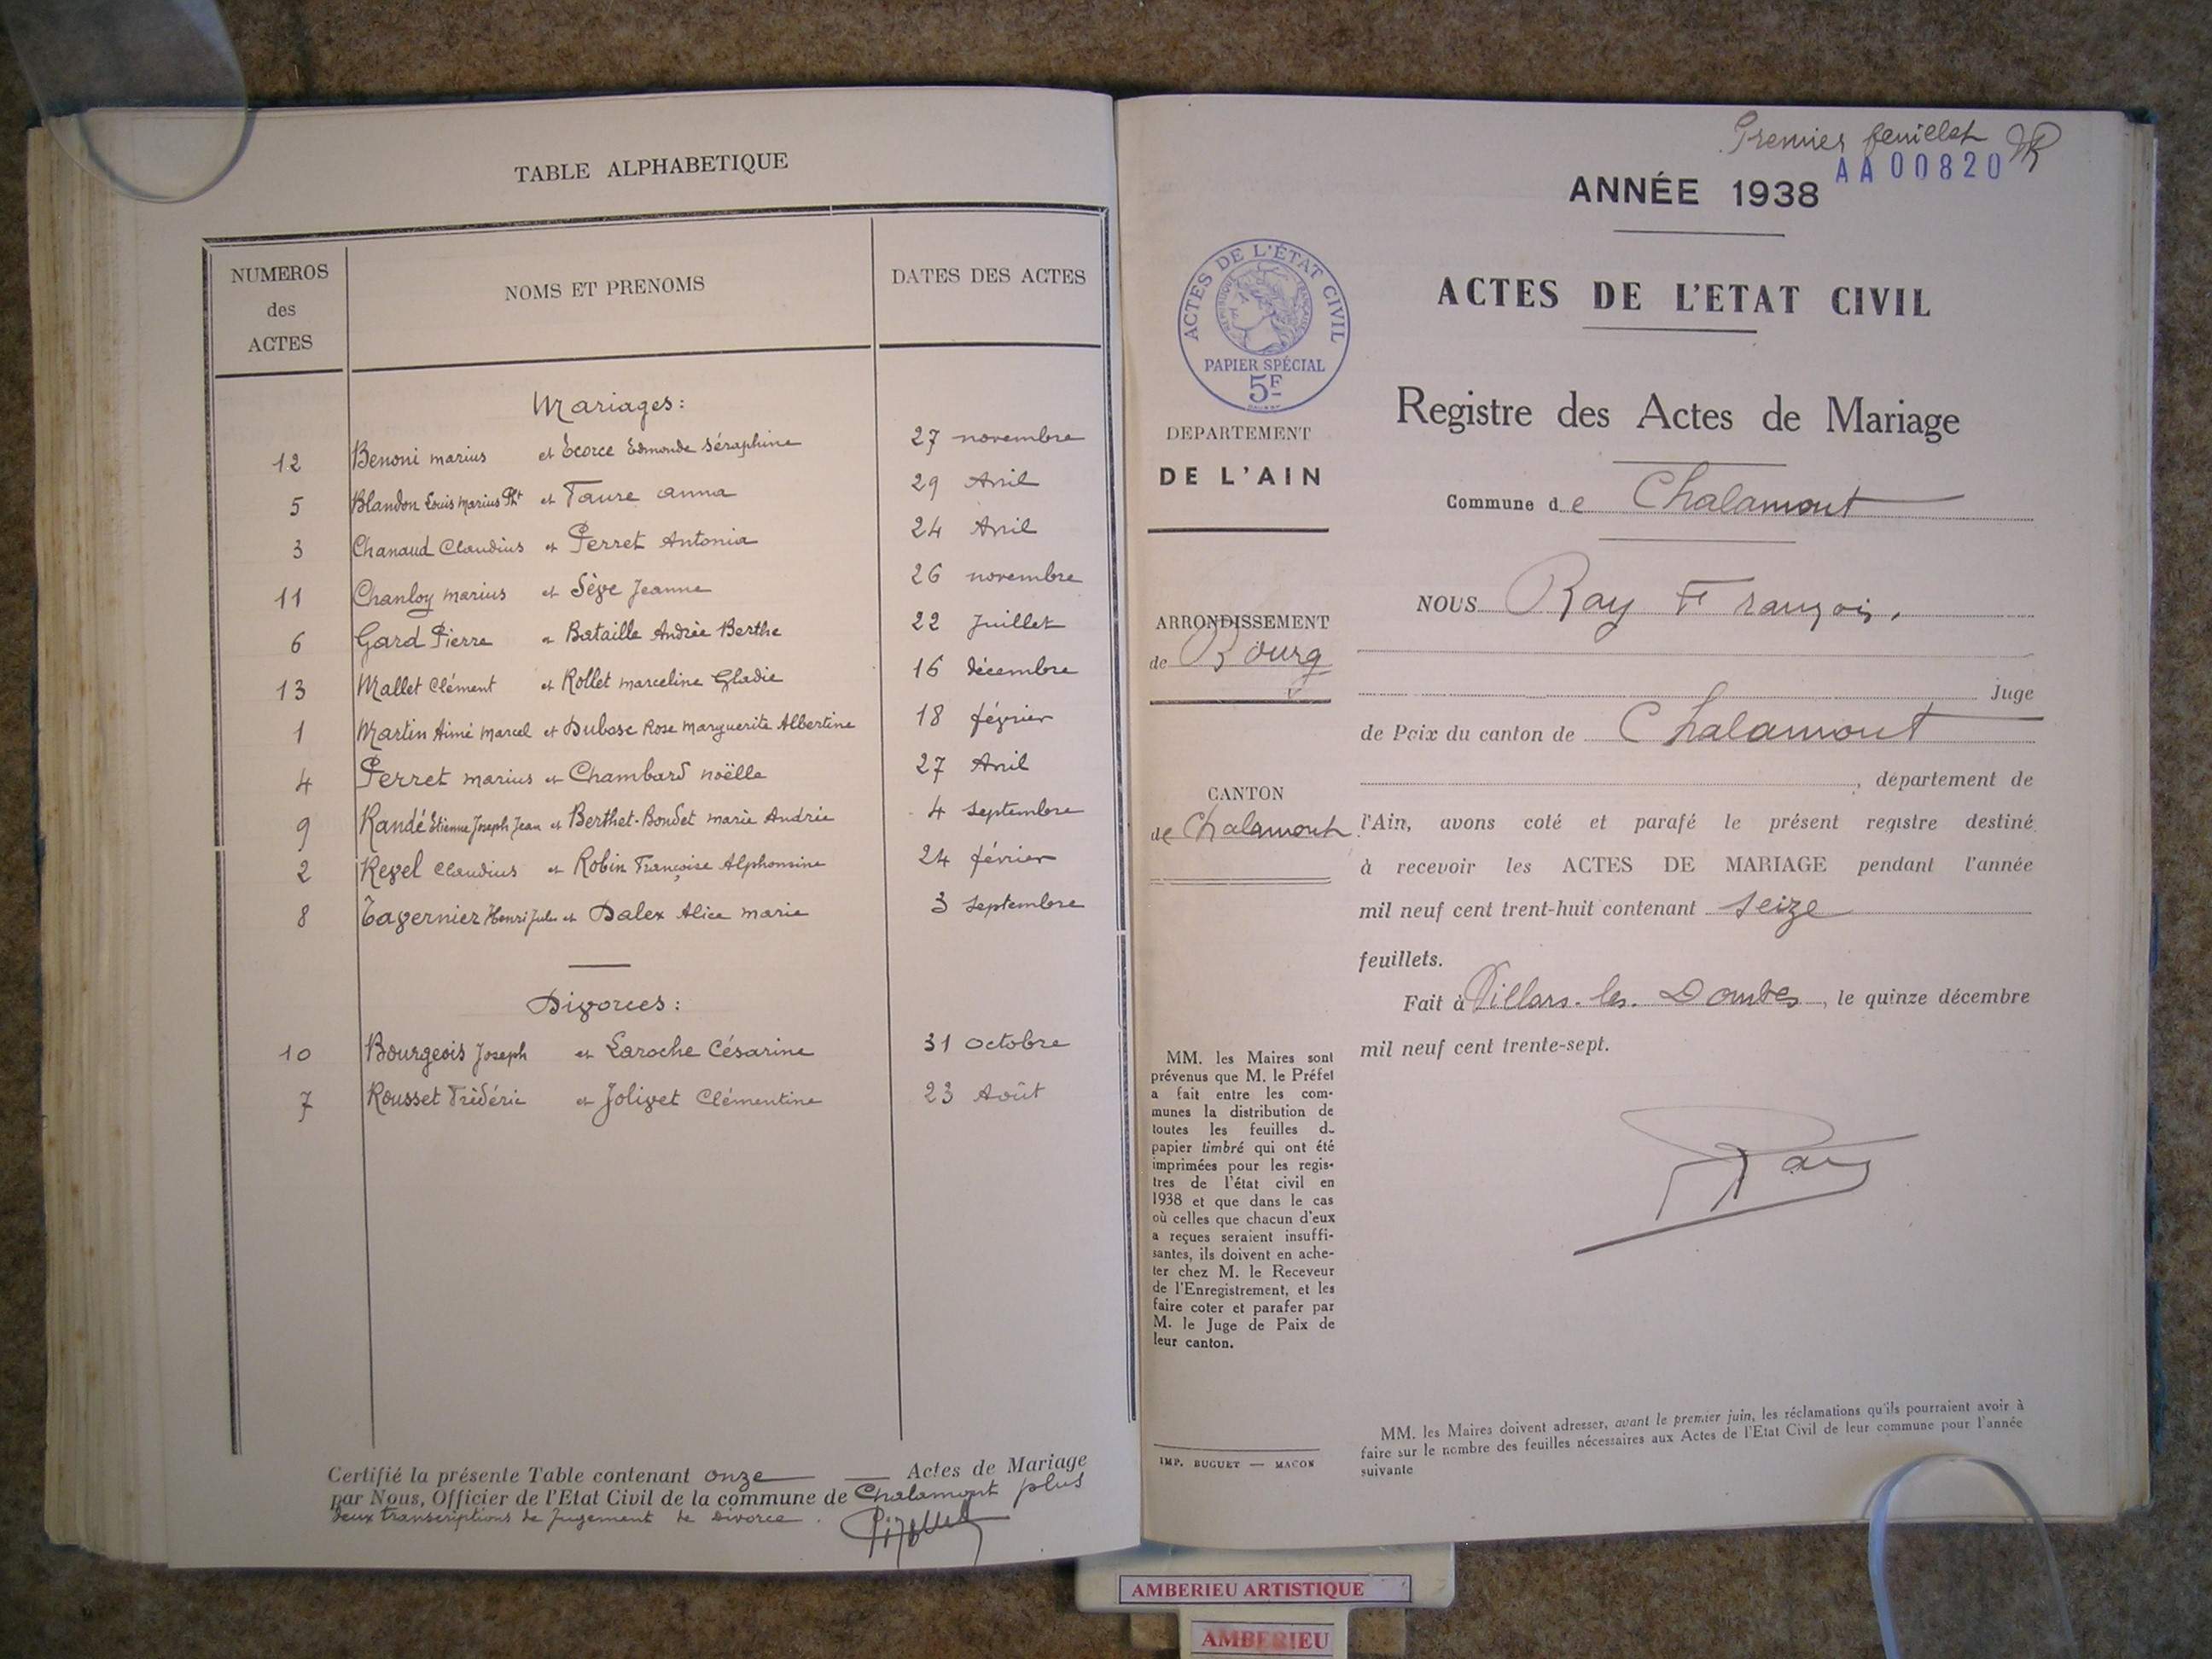 TABLE ALPHABETIQUE
NUMEROS des ACTES NOMS ET PRENOMS DATES DES ACTES
Mariages:
12 Benoni Marius et Ecorce Edmonde Séraphine 27 novembre
5 Blandon Louis Marius Pht et Faure Anna 29 Avril
3 Chanaud Claudius et Perret Antonia 24 Avril
11 Chanloy Marius et Sève Jeanne 26 novembre
6 Gard Pierre et Bataille Andrée Berthe 22 Juillet
13 Mallet Clément et Rollet Marceline Gladie 16 décembre
1 Martin Aimé Marcel et Dubosc Rose Marguerite Albertine 18 février
4 Perret Marius et Chambard noëlle 27 Avril
9 Randé Etienne Joseph Jean et Berthet-Bondet Marie Andrée 4 septembre
2 Revel Claudius et Robin Françoise Alphonsine 24 février
8 Tavernier Henri Jules et Dalex Alice Marie 3 septembre
Divorces:
10 Bourgeois Joseph et Laroche Césarine 31 octobre
7 Rousset Frédéric et Jolivet Clémentine 23 Août
Certifié la présente Table contenant onze Actes de Mariage
par Nous, Officier de l'Etat Civil de la commune de Chalamont plus
deux transcriptions de jugement de divorce.
Premier feuillet
AA00820
ANNÉE 1938
ACTES DE L'ETAT CIVIL
ACTES DE L'ÉTAT CIVIL
RÉPUBLIQUE FRANÇAISE
PAPIER SPÉCIAL
5F
Registre des Actes de Mariage
DEPARTEMENT
DE L'AIN
Commune de Chalamont
ARRONDISSEMENT
de Bourg
CANTON
de Chalamont
NOUS Ray François,
Juge
de Paix du canton de Chalamont
, département de
l'Ain, avons coté et parafé le présent registre destiné
à recevoir les ACTES DE MARIAGE pendant l'année
mil neuf cent trent-huit contenant seize
feuillets.
Fait à Villars-les-Dombes, le quinze décembre
mil neuf cent trente-sept.
Ray
MM. les Maires sont
prévenus que M. le Préfet
a fait entre les com-
munes la distribution de
toutes les feuilles de
papier timbré qui ont été
imprimées pour les regis-
tres de l'état civil en
1938 et que dans le cas
où celles que chacun d'eux
a reçues seraient insuffi-
santes, ils doivent en ache-
ter chez M. le Receveur
de l'Enregistrement, et les
faire coter et parafer par
M. le Juge de Paix de
leur canton.
IMP. BUGUET — MACON
MM. les Maires doivent adresser, avant le premier juin, les réclamations qu'ils pourraient avoir à
faire sur le nombre des feuilles nécessaires aux Actes de l'Etat Civil de leur commune pour l'année
suivante
AMBERIEU ARTISTIQUE
AMBERIEU